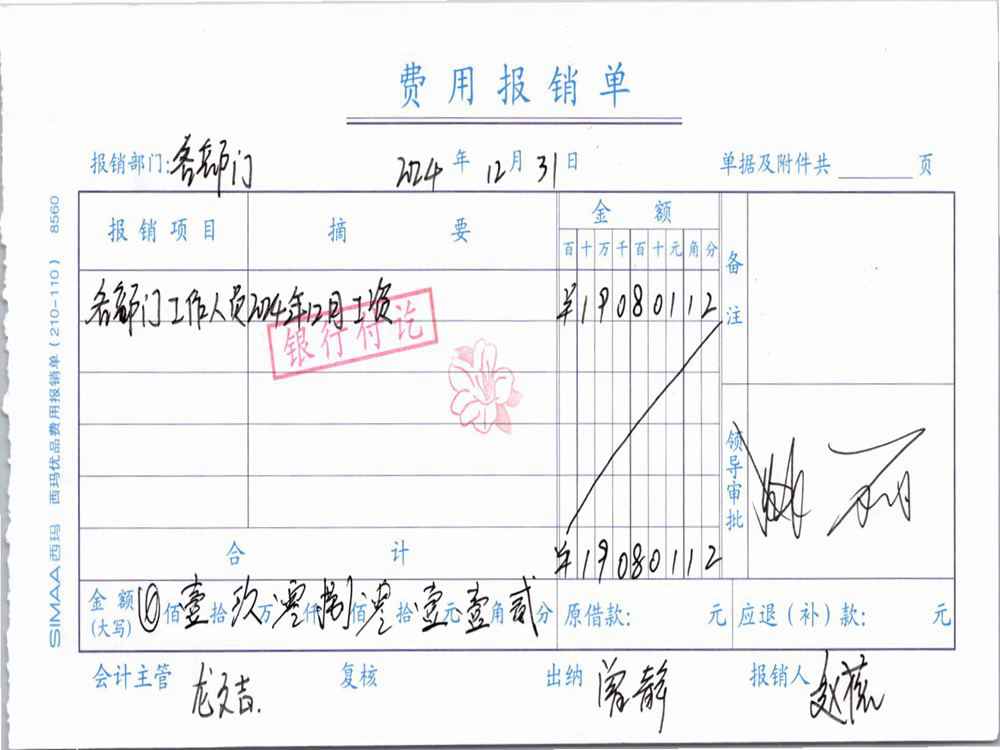 费用报销单
报销部门:各部门 2024年12月31日 单据及附件共 页
报销项目 摘要 金额 备注
百十万千百十元角分
各部门工作人员2024年12月工资 ¥19080112
银行付讫
领导审批
合计 ¥19080112
金额(大写) 佰壹拾玖万零仟捌佰零拾壹元壹角贰分 原借款: 元 应退(补)款: 元
会计主管 龙文吉. 复核 出纳 曾静 报销人
SIMAA西玛 西玛优品费用报销单(210-110) 8560